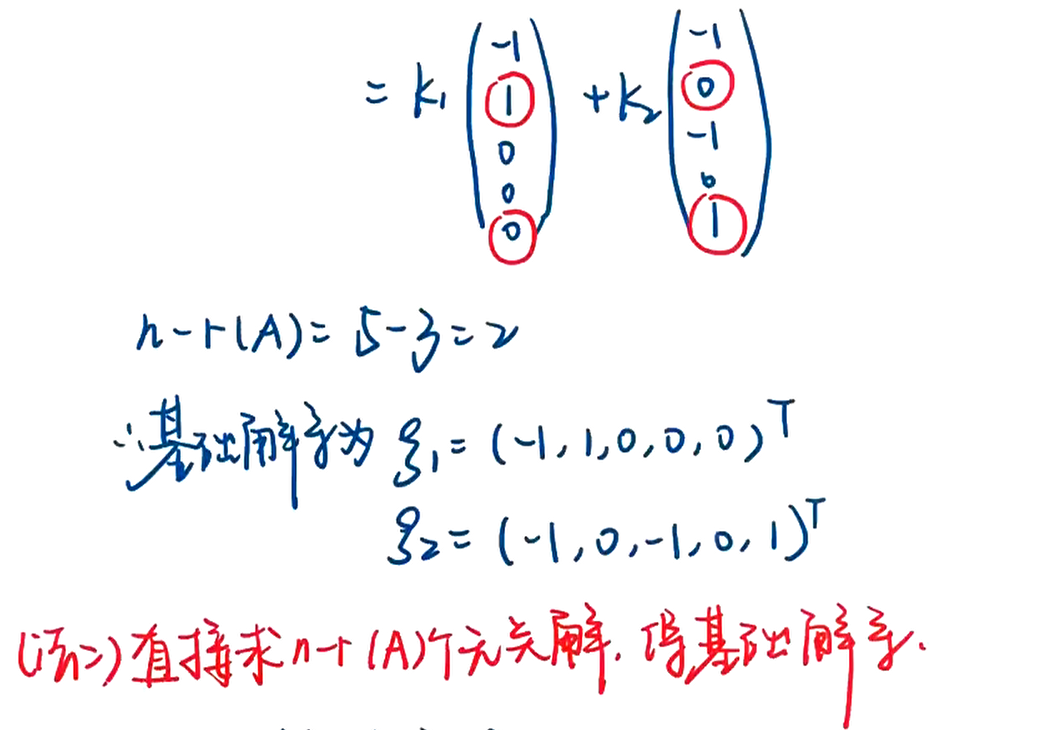 = k₁ (-1, 1, 0, 0, 0) + k₂ (-1, 0, -1, 0, 1)
n-r(A)=5-3=2
∴基础解系为 ξ₁=(-1,1,0,0,0)ᵀ
ξ₂=(-1,0,-1,0,1)ᵀ
(法二)直接求n-r(A)个无关解.得基础解系.